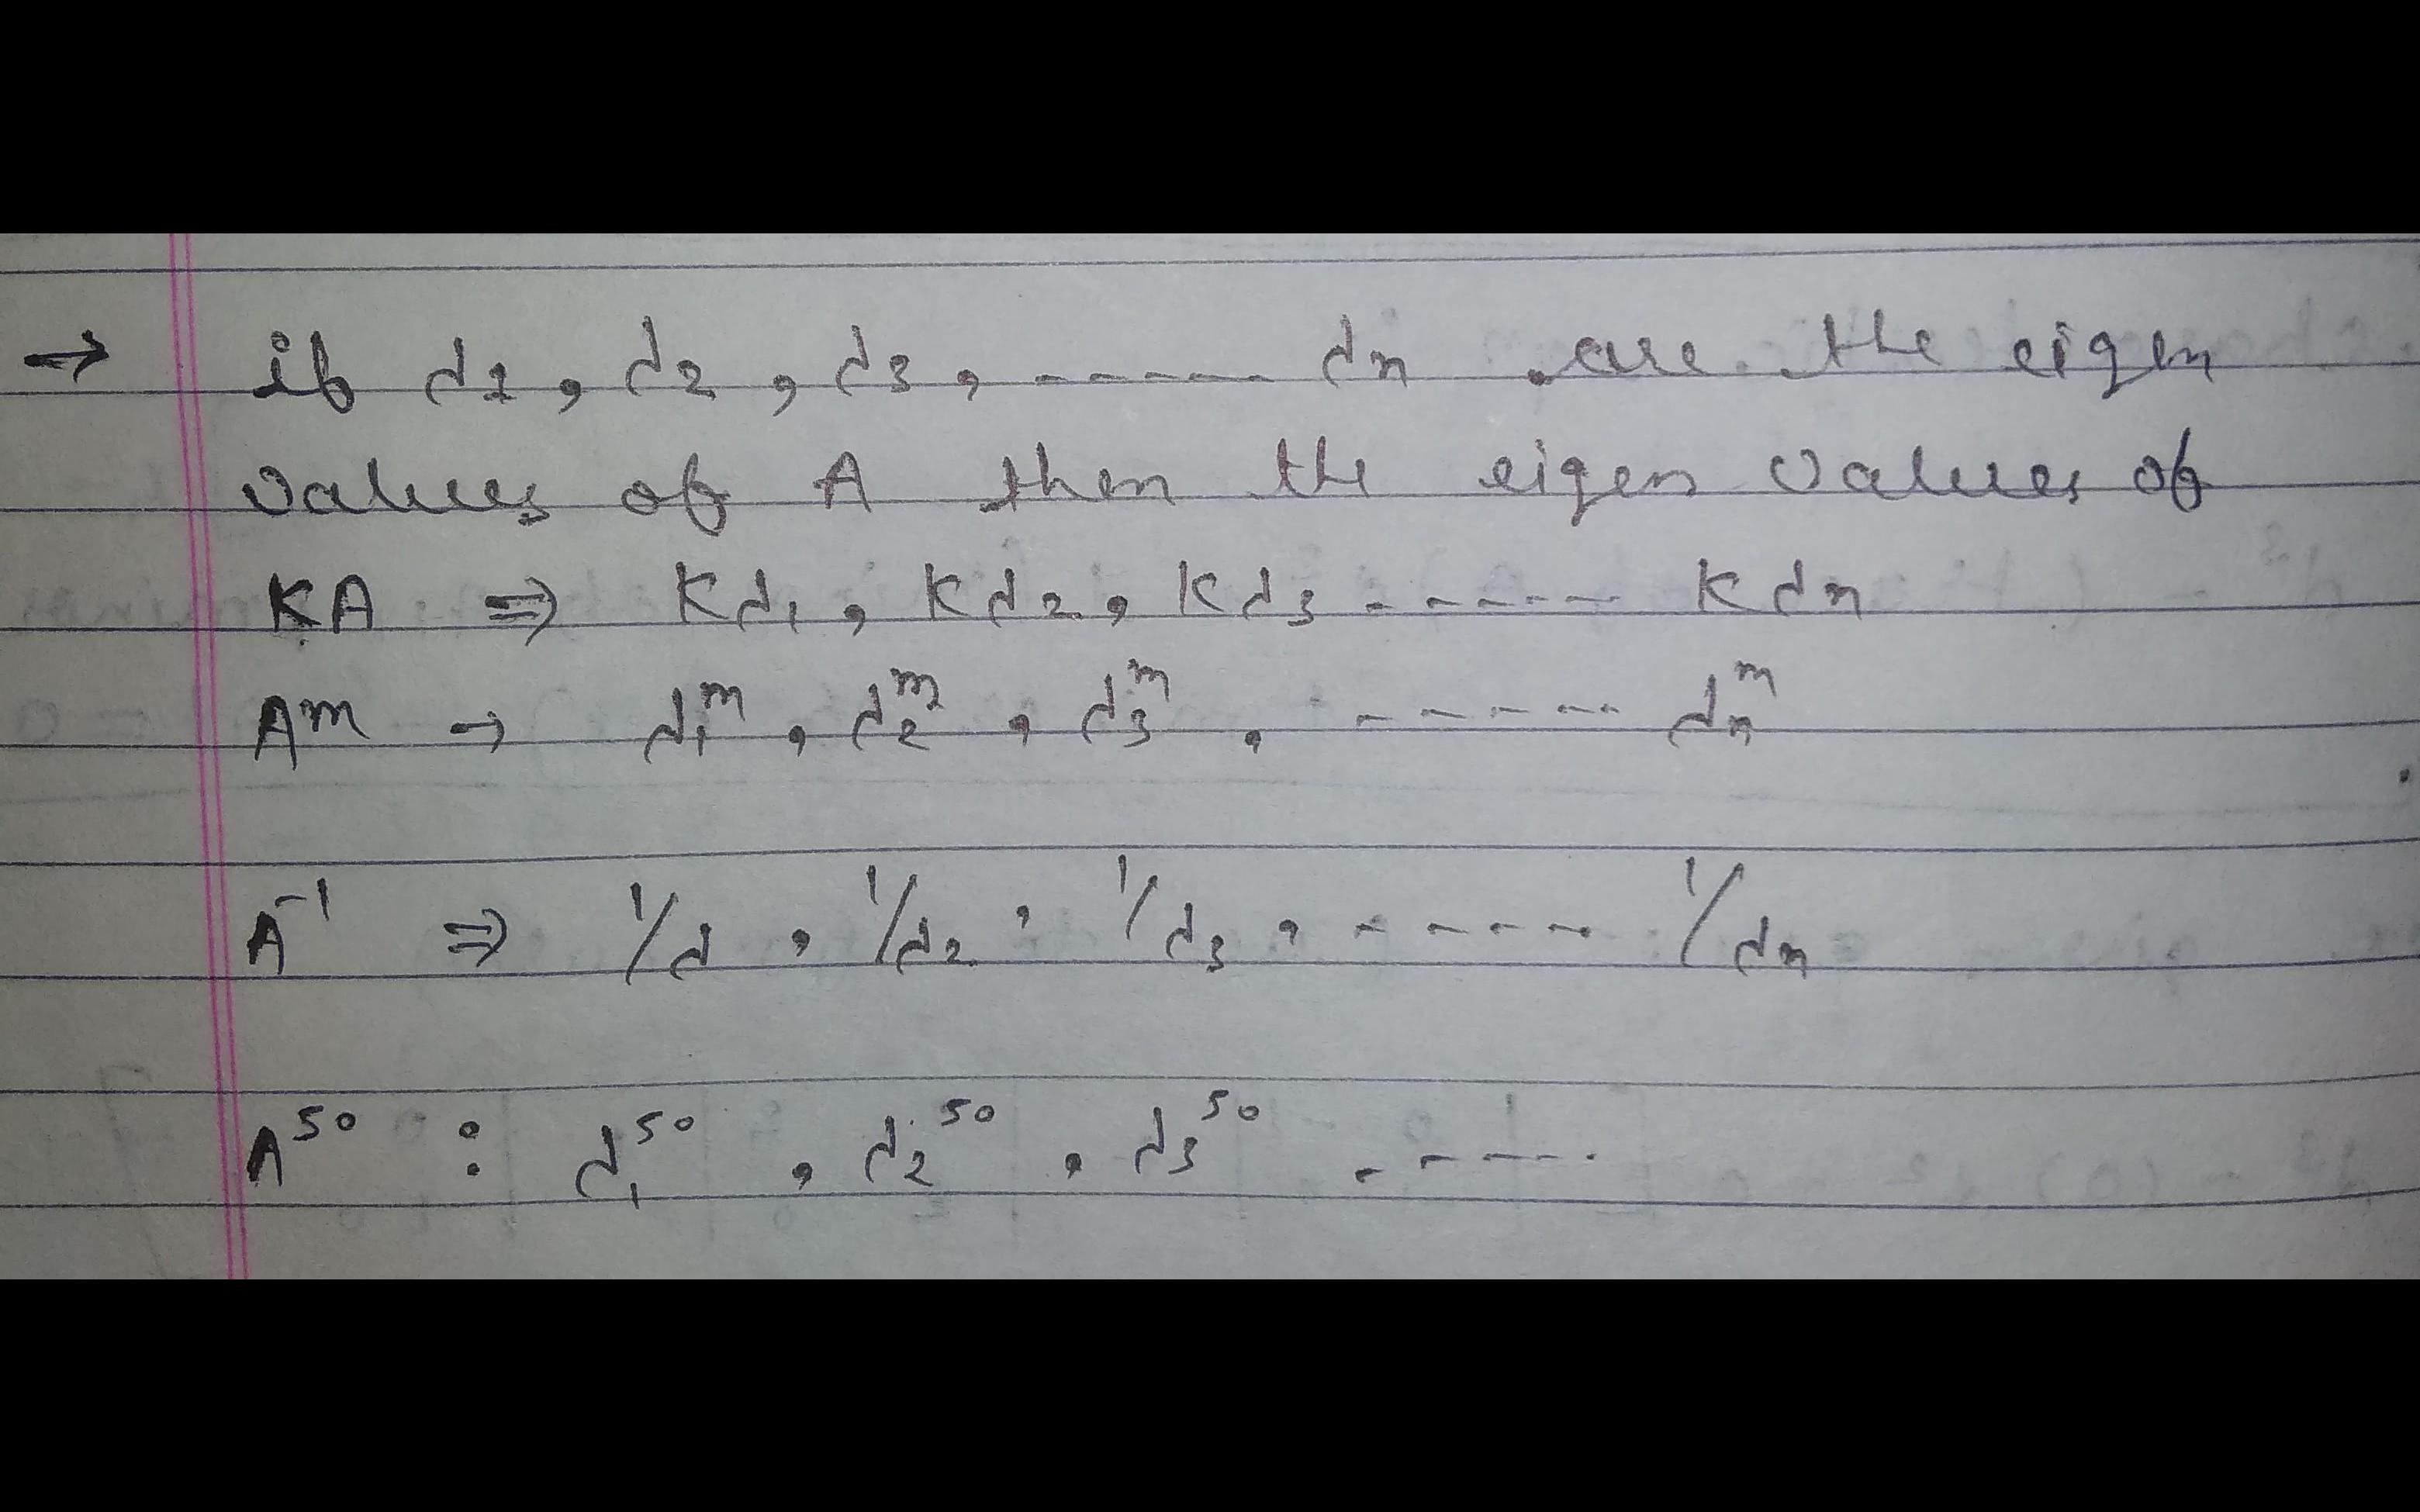 → if λ1, λ2, λ3, ----- λn are the eigen
values of A then the eigen values of
KA ⇒ Kλ1, Kλ2, Kλ3 ------ Kλn
A^m → λ1^m, λ2^m, λ3^m, ------ λn^m
A^-1 ⇒ 1/λ, 1/λ2, 1/λ3, ----- 1/λn
A^50 : λ1^50, λ2^50, λ3^50 -----